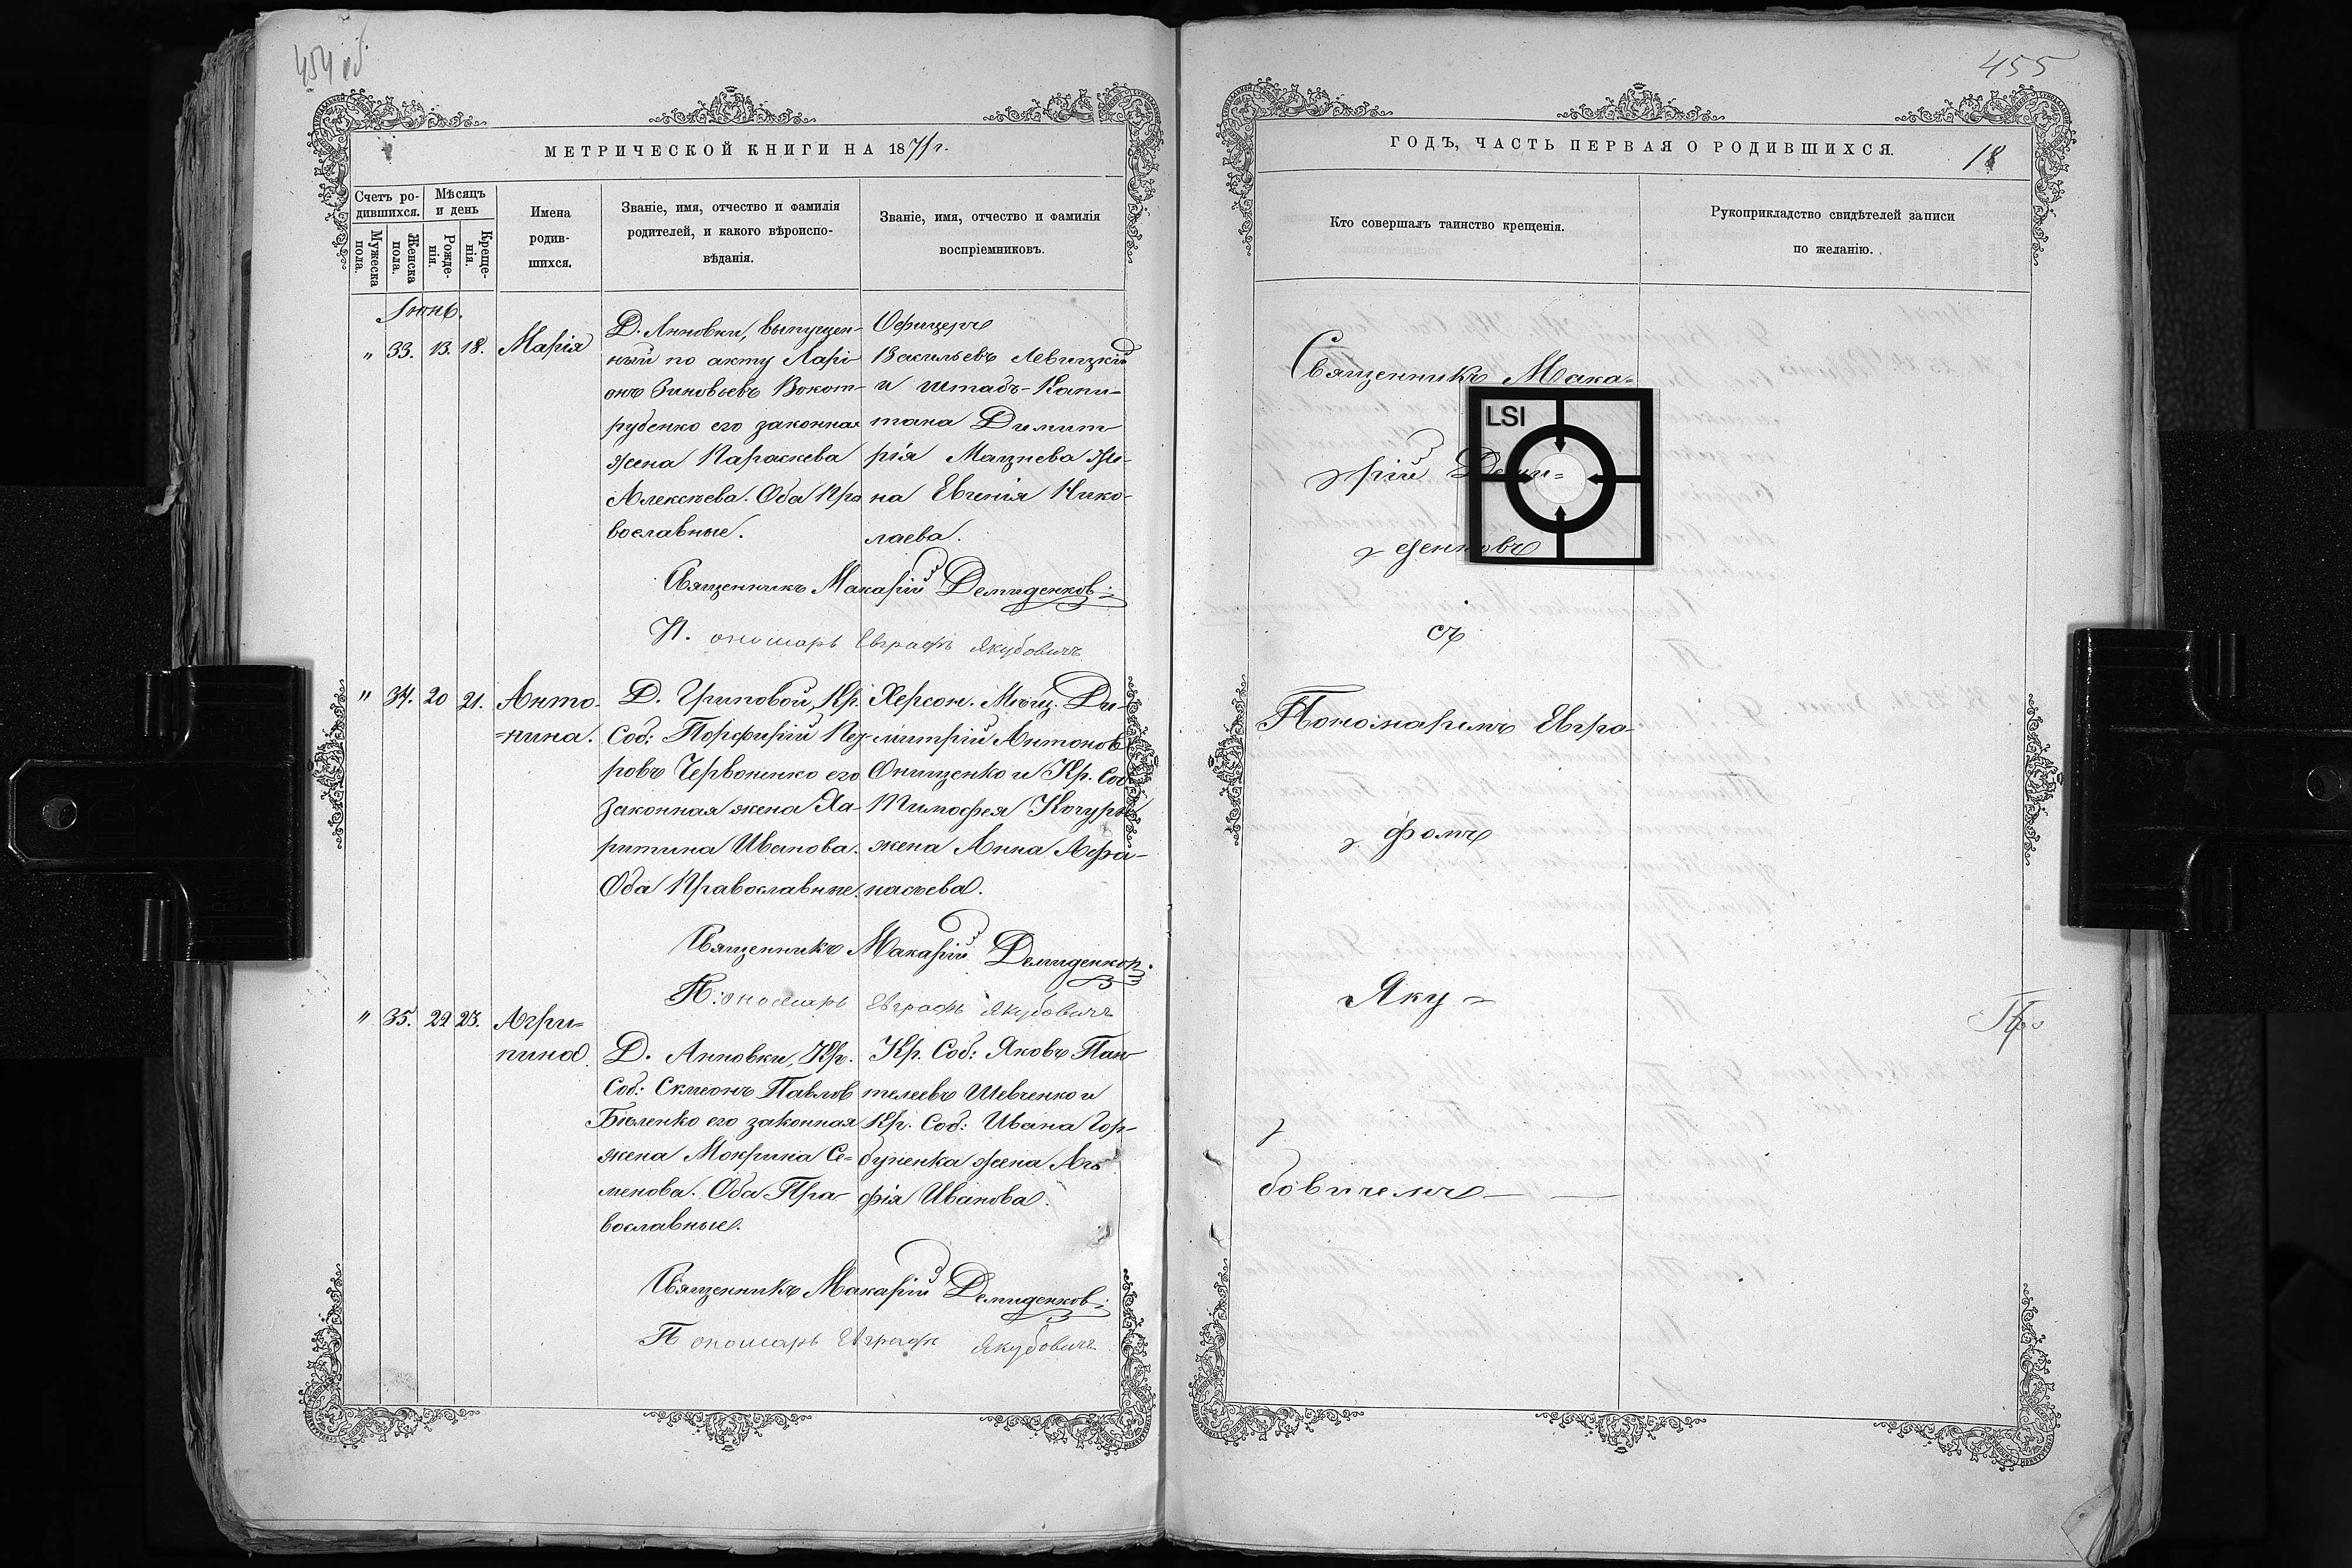 454 об
МЕТРИЧЕСКОЙ КНИГИ НА 1871 г.
Счетъ ро-
дившихся.
Мужеска
пола.
Женска
пола.
Мѣсяцъ
и день
Рожде-
нія.
Креще-
нія.
Имена
родив-
шихся.
Званіе, имя, отчество и фамилія
родителей, и какого вѣроиспо-
вѣданія.
Званіе, имя, отчество и фамилія
воспріемниковъ.
Іюнь.
" 33. 13. 18. Марія
Д. Анновки, выпущен-
ный по акту Ларі-
онъ Зиновьевъ Вокот-
рубенко его законная
жена Параскева
Алексѣева. Оба Пра
вославные.
Офицеръ
Васильевъ Левицкій
и Штабъ-Капи-
тана Димит
рія Мацнева же-
на Евгенія Нико-
лаева.
Священникъ Макарій Демиденков
Пономарь Евграфъ Якубовичъ
" 34. 20 21. Анто-
=нина.
Д. Гриповой, Кр.
Соб: Порфирій
ровъ Червоненко его
законная жена Ха-
ритина Иванова.
Оба Православные.
Херсон. Мѣщ. Ди-
митрій Антонов
Онищенко и Кр. Соб
Тимофея Кочуры
жена Анна Афа-
насьева.
Священникъ Макарій Демиденков
Пономарь Евграфъ Якубовичъ
" 35. 22 23. Агри=
пина
Д. Анновки, Кр.
Соб: Симеонъ Павлов
Бѣленко его законная
жена Мокрина Се=
менова. Оба Пра-
вославные.
Кр. Соб: Яковъ Пан
телеевъ Шевченко и
Кр. Соб: Ивана Гор-
буненка жена Ага
фія Иванова.
Священникъ Макарій Демиденков
Пономарь Евграфъ Якубовичъ
455
ГОДЪ, ЧАСТЬ ПЕРВАЯ О РОДИВШИХСЯ.
18
Кто совершалъ таинство крещенія.
Рукоприкладство свидѣтелей записи
по желанію.
Священникъ Мака=
LSI
рій Деми=
денковъ
съ
Пономаремъ Евгра-
фомъ
Яку=
бовичемъ
Пр